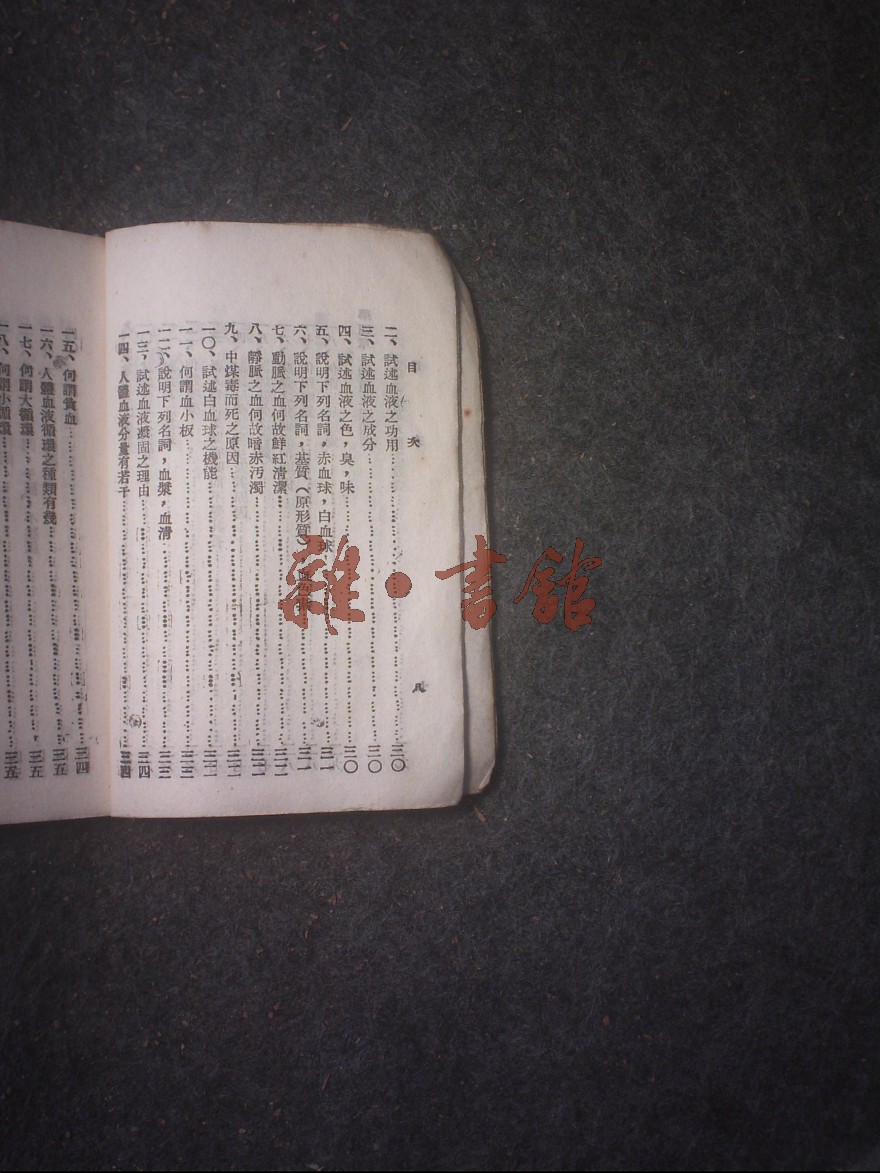 目次 八
二、試述血液之功用……三〇
三、試述血液之成分……三〇
四、試述血液之色，臭，味……三〇
五、說明下列名詞，赤血球，白血球……三一
六、說明下列名詞，基質（原形質）……三一
七、動脈之血何故鮮紅清潔……三二
八、靜脈之血何故暗赤污濁……三二
九、中煤毒而死之原因……三二
一〇、試述白血球之機能……三三
一一、何謂血小板……三三
一二、說明下列名詞，血漿，血清……三三
一三、試述血液凝固之理由……三四
一四、人體血液分量有若干……三四
一五、何謂貧血……三四
一六、人體血液循環之種類有幾……三五
一七、何謂大循環……三五
一八、何謂小循環……三五
雜·書舘